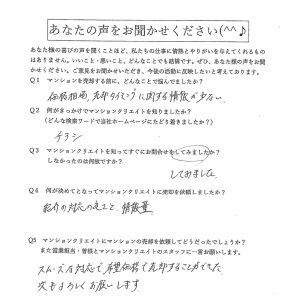 あなたの声をお聞かせください(^^♪
あなた様の喜びの声を聞くことほど、私たちの仕事に情熱とやりがいを与えてくれるもの
はありません。いいこと・悪いこと、どんなことでも結構です。ぜひ、あなた様の声をお聞
かせください。ご意見をお聞かせいただき、今後の活動に反映したいと考えております。
Q1 マンションを売却する前に、どんなことで悩んでましたか？
価格相場、売却タイミングに関する情報が少ない
Q2 何がきっかけでマンションクリエイトを知りましたか？
（どんな検索ワードで当社ホームページにたどり着きましたか？）
チラシ
Q3 マンションクリエイトを知ってすぐにお問合せをしてみましたか？
しなかったのは何故ですか？
してみました
Q4 何が決めてとなってマンションクリエイトに売却を依頼しましたか？
紹介の対応の良さと、情報量
Q5 マンションクリエイトにマンションの売却を依頼してどうだったでしょうか？
また営業担当・皆様とマンションクリエイトのスタッフに一言お願いします。
スムーズな対応で希望価格で売却することができた
次もよろしくお願いします